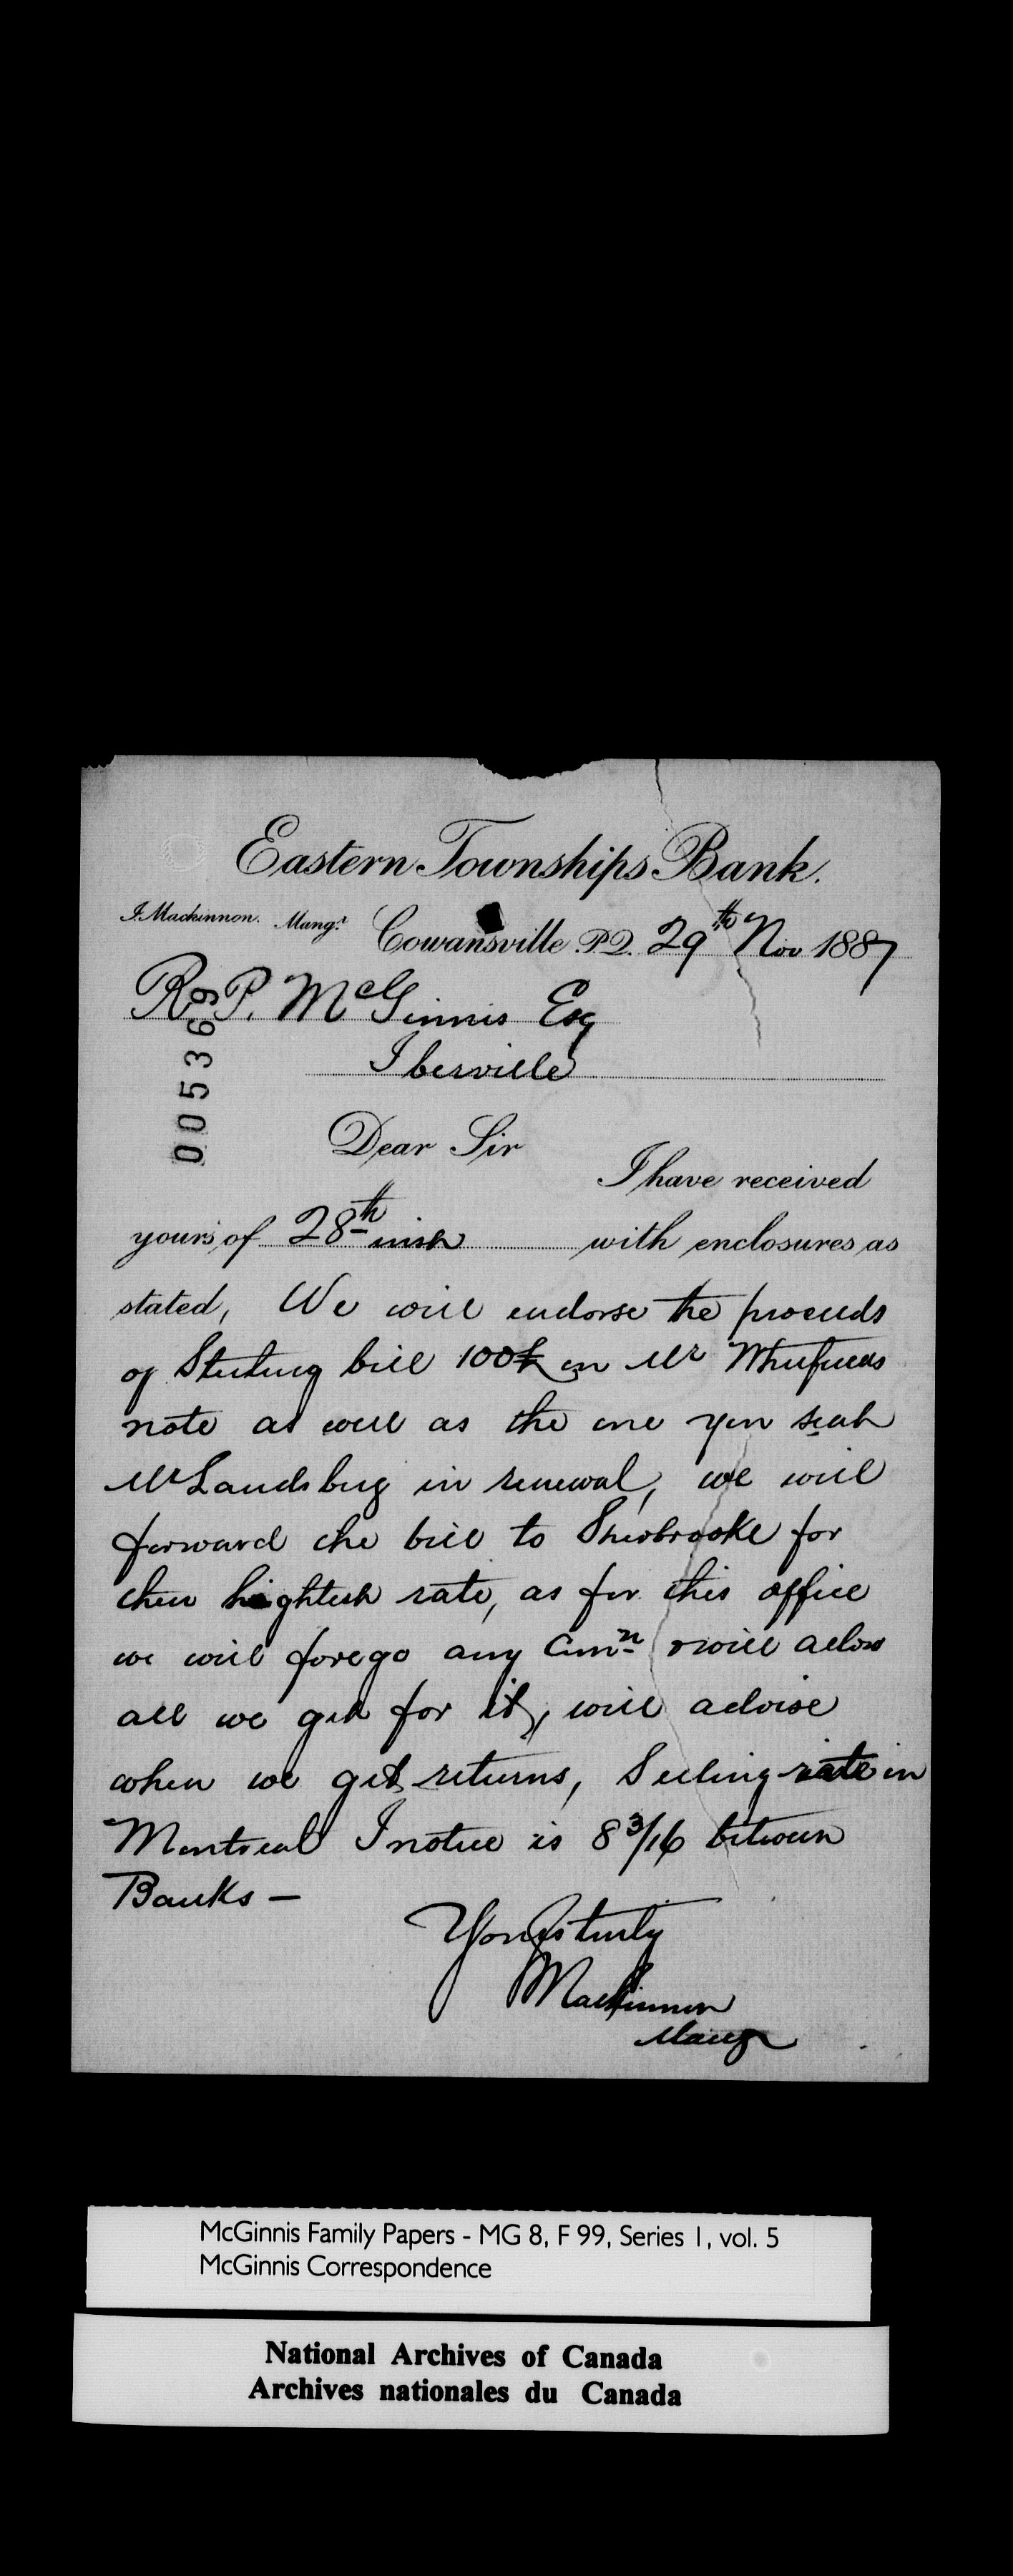 Eastern Townships Bank.
J. Mackinnon. Mangr.
Cowansville P.Q. 29th Nov 1887
R. P. McGinnis Esq
Iberville
005369
Dear Sir
I have received
yours of 28th inst with enclosures as
stated, We will endorse the proceeds
of Sterling bill 100£ on Mr
note as well as the one you sent
Mr Landsberg in renewal, we will
forward the bill to Sherbrooke for
their highest rate, as for this office
we will forego any Comn & will allow
all we get for it, will advise
when we get returns, Selling rate in
Montreal I notice is 8 3/16 between
Banks —
Yours truly
Mackinnon
Mangr
McGinnis Family Papers - MG 8, F 99, Series 1, vol. 5
McGinnis Correspondence
National Archives of Canada
Archives nationales du Canada